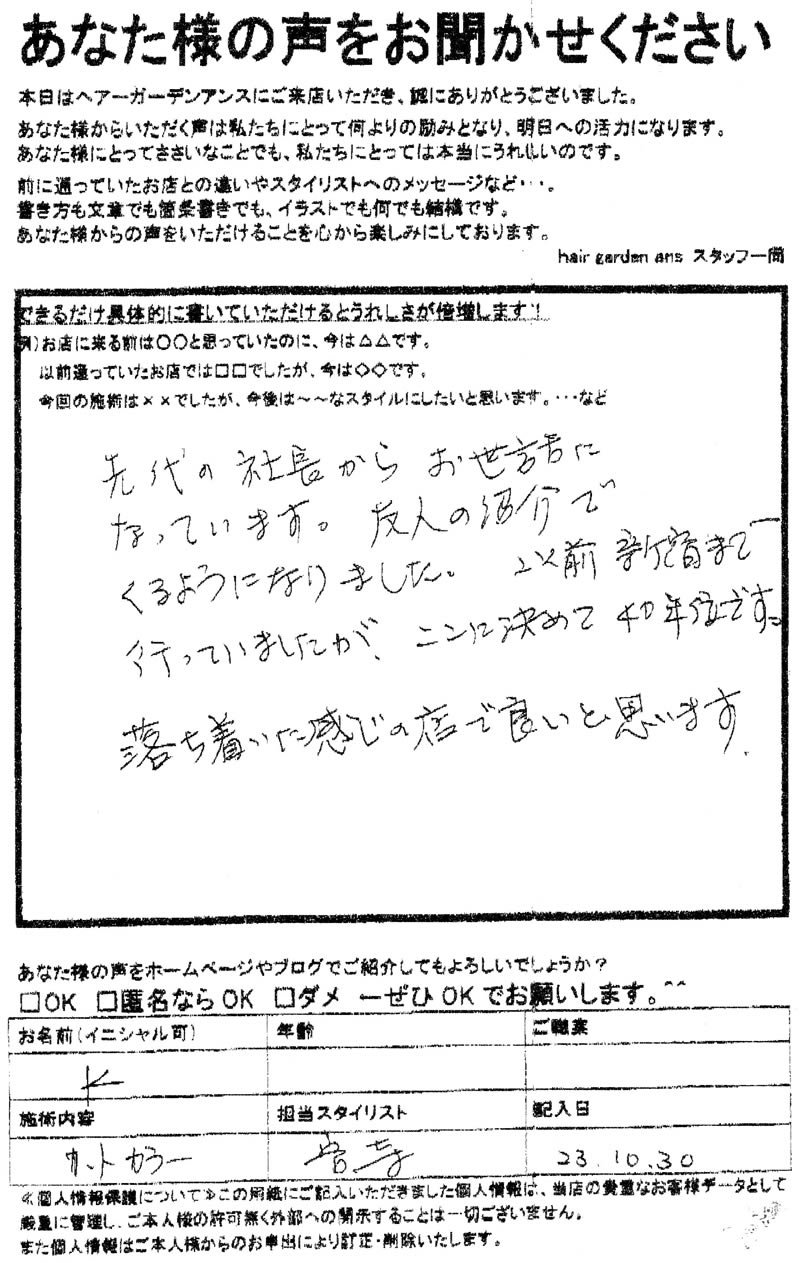 あなた様の声をお聞かせください
本日はヘアーガーデンアンスにご来店いただき、誠にありがとうございました。
あなた様からいただく声は私たちにとって何よりの励みとなり、明日への活力になります。
あなた様にとってささいなことでも、私たちにとっては本当にうれしいのです。
前に通っていたお店との違いやスタイリストへのメッセージなど・・・。
書き方も文章でも箇条書きでも、イラストでも何でも結構です。
あなた様からの声をいただけることを心から楽しみにしております。
hair garden ans スタッフ一同
できるだけ具体的に書いていただけるとうれしさが倍増します！
例）お店に来る前は〇〇と思っていたのに、今は△△です。
以前通っていたお店では□□でしたが、今は◇◇です。
今回の施術は××でしたが、今後は～～なスタイルにしたいと思います。・・・など
先代の社長からお世話に
なっています。友人の紹介で
くるようになりました。以前新宿まで
行っていましたが、ここに決めて40年位です。
落ち着いた感じの店で良いと思います.
あなた様の声をホームページやブログでご紹介してもよろしいでしょうか？
□OK □匿名ならOK □ダメ ーぜひOKでお願いします。^^
お名前（イニシャル可） 年齢 ご職業
K
施術内容 担当スタイリスト 記入日
カット カラー 23.10.30
≪個人情報保護について≫この用紙にご記入いただきました個人情報は、当店の貴重なお客様データとして
厳重に管理し、ご本人様の許可無く外部への開示することは一切ございません。
また個人情報はご本人様からのお申出により訂正・削除いたします。